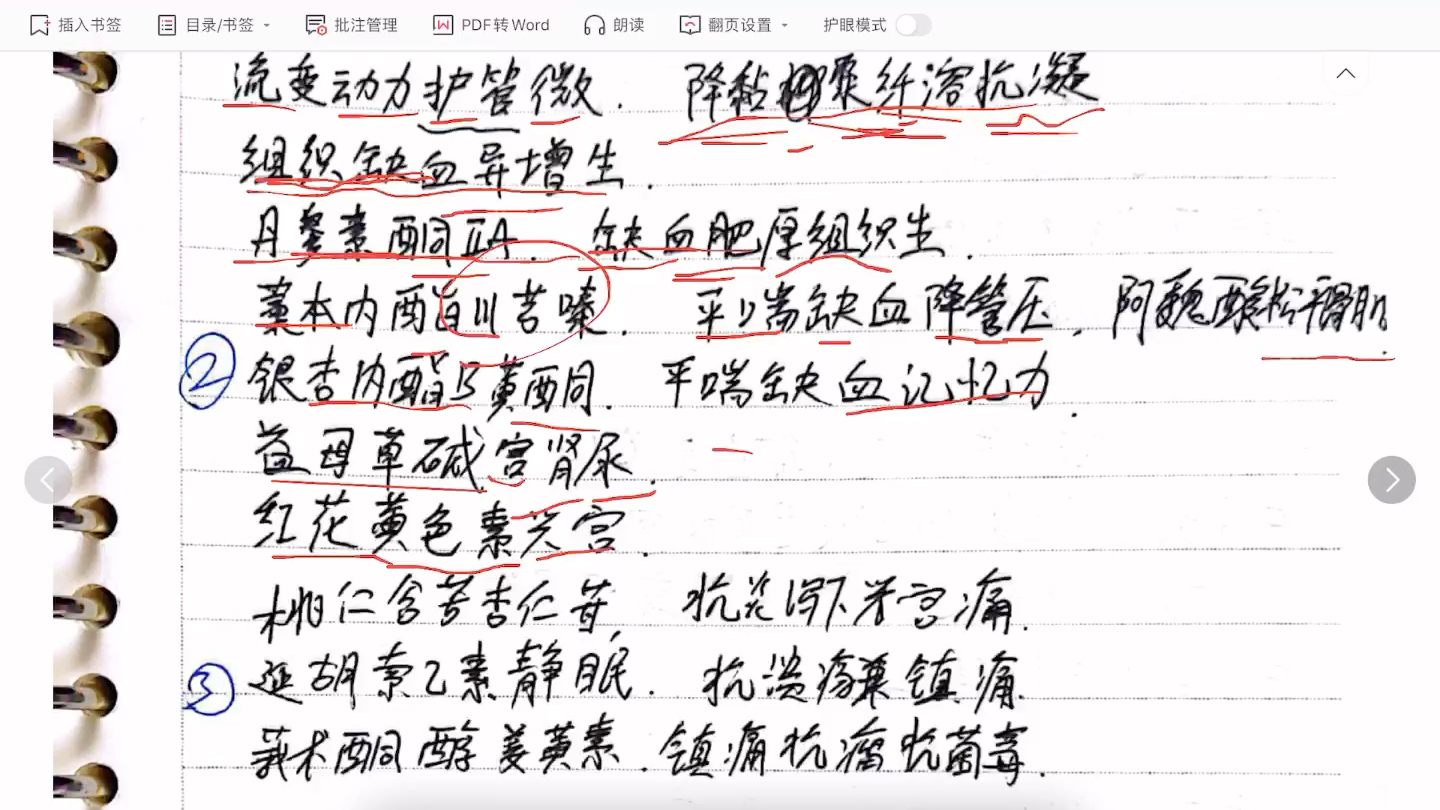 插入书签 目录/书签 批注管理 PDF转Word 朗读 翻页设置 护眼模式
流变动力护管微. 降黏聚纤溶抗凝
组织缺血异增生.
丹参素酮ⅡA. 缺血肥厚组织生.
藁本内酯川芎嗪. 平喘缺血降管压. 阿魏酸松平滑肌.
② 银杏内酯与黄酮. 平喘缺血记忆力.
益母草碱宫肾尿.
红花黄色素兴宫.
桃仁含苦杏仁苷, 抗炎泻下米宫痛.
③ 延胡索乙素静眠. 抗溃疡兼镇痛.
莪术酮醇姜黄素. 镇痛抗瘤抗菌毒.